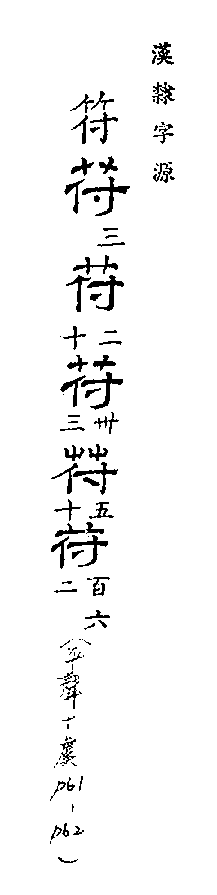 漢隸字源
符苻三苻二十苻卌三苻五十苻百六二(平聲十虞p61-p62)